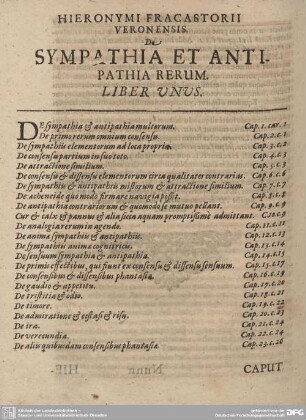 HIERONYMI FRACASTORII
VERONENSIS.
De
SYMPATHIA ET ANTI-
PATHIA RERUM.
LIBER VNUS.
DE sympathia & antipathia multorum. Cap.1.car.1.
De primo rerum omnium consensu. Cap.2.c.1.
De sympathiis elementorum ad loca propria. Cap.3.c.2
De consensu partium in suo toto. Cap.4.c.3
De attractione similium. Cap.5.c.3
De consensu & dissensu elementorum circa qualitates contrarias. Cap.6.c.
De sympathiis & antipathiis mistorum & attractione similium. Cap.7.c.7
De echeneide quomodo firmare navigia possit. Cap.8.c.8
De antipathia contrariorum & quomodo se mutuo pellant. Cap.9.c.9
Cur & calx & pannus & alia sicca aquam promptissime admittant. C.10.c.9
De analogia rerum in agendo. Cap.11.c.11
De animæ sympathiis & antipathiis. Cap.12.c.13
De sympathiis animæ cognitricis. Cap.13.c.14
De sensuum sympathia & antipathia. Cap.14.c.
De primis effectibus, qui fiunt ex consensu & dissensu sensuum. Cap.15.c.17
De consensibus & dissensibus phantasiæ. Cap.16.c.18
De gaudio & appetitu. Cap.17.c.19
De tristitia & odio. Cap.18.c.
De timore. Cap.19.c.22
De admiratione & ecstasi & risu. Cap.20.c.23
De ira. Cap.21.c.24
De verecundia. Cap.22.c.24
De aliis quibusdam consensibus phantasiæ. Cap.23.c.26
CAPUT